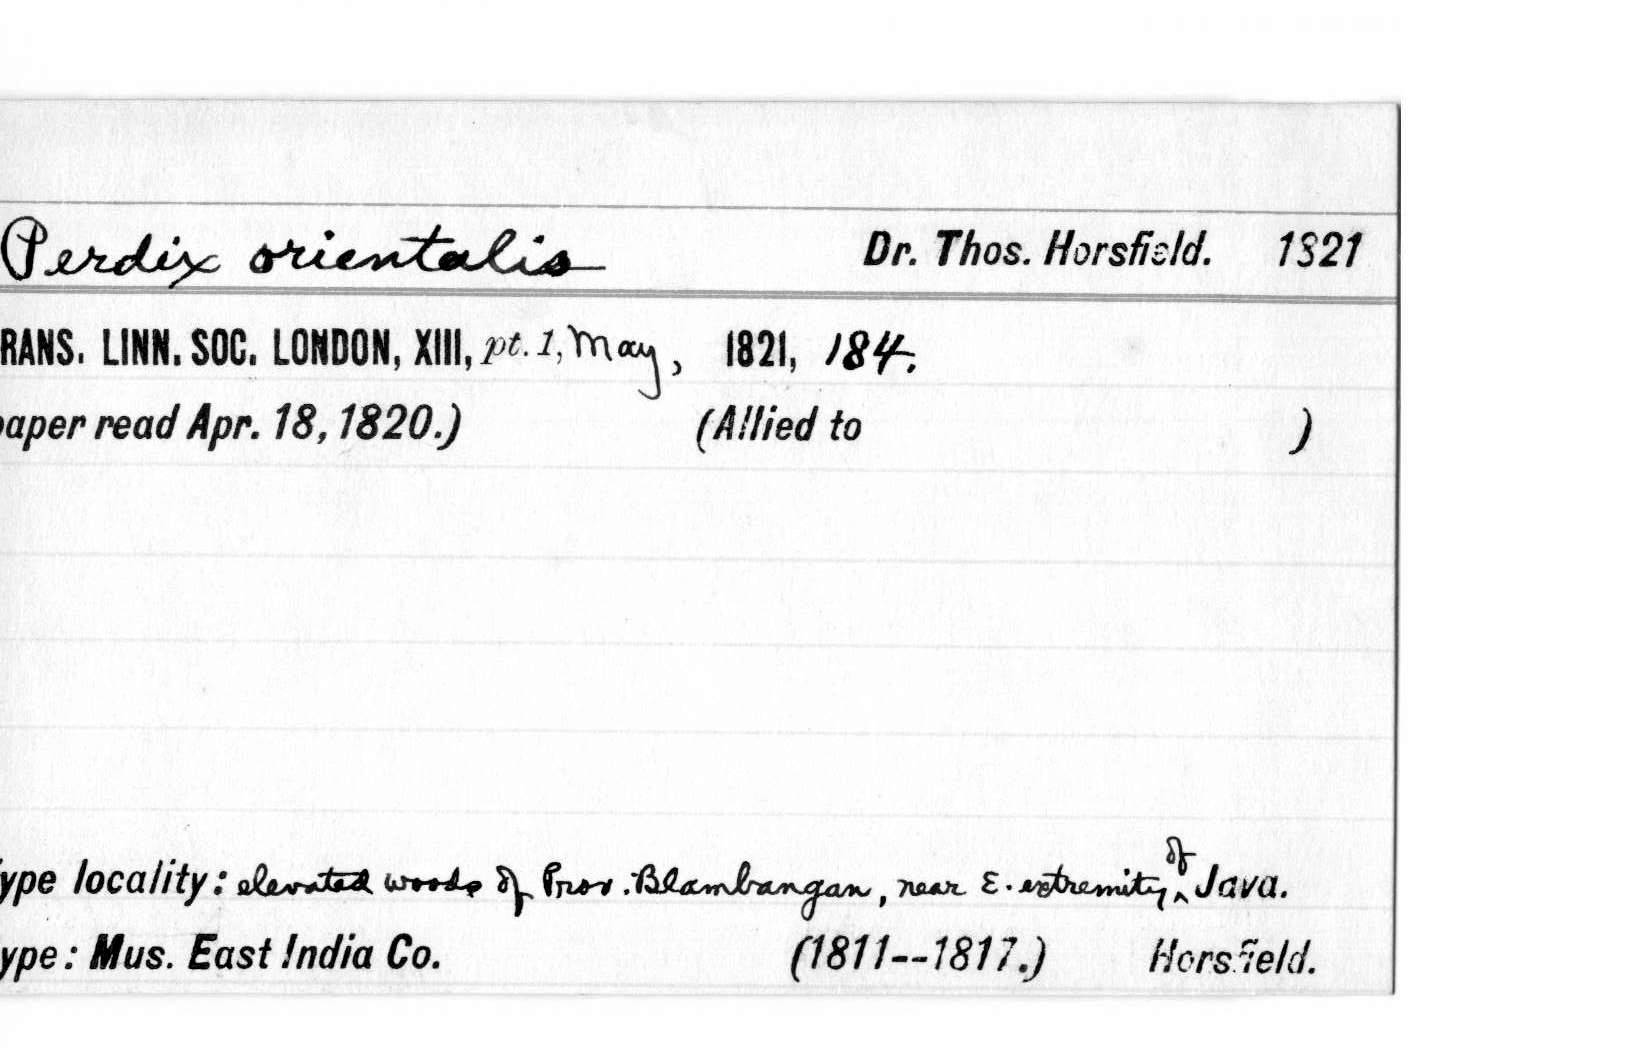 Perdix orientalis Dr. Thos. Horsfield. 1821
RANS. LINN. SOC. LONDON, XIII, pt. 1, May, 1821, 184.
paper read Apr. 18, 1820.) (Allied to )
ype locality: elevated woods of Prov. Blambangan, near E. extremity of Java.
ype: Mus. East India Co. (1811--1817.) Horsfield.